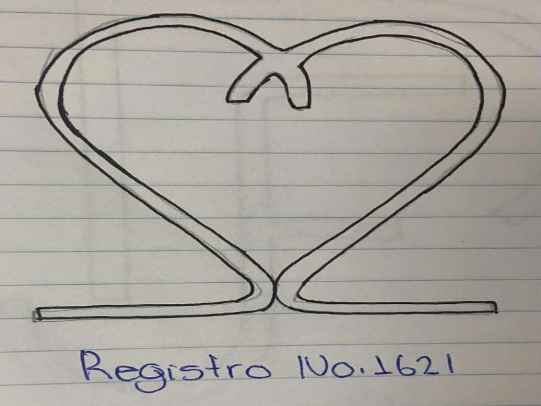 Registro No.1621